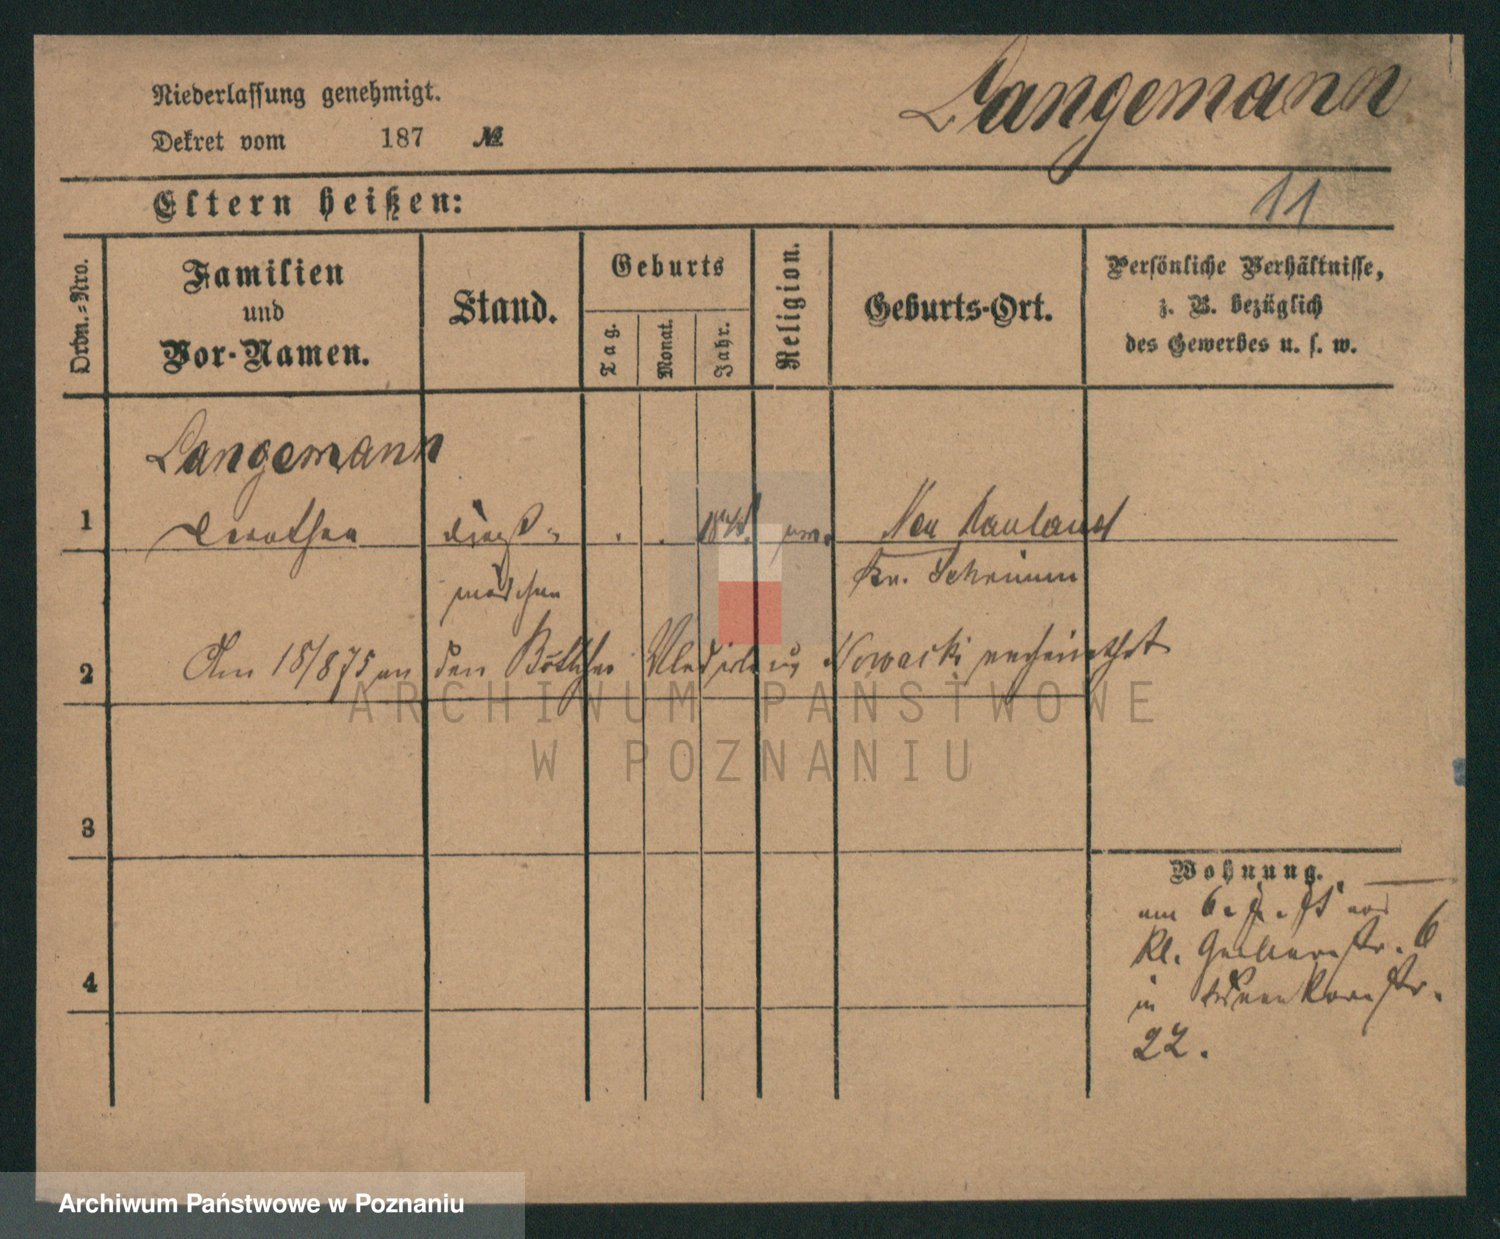 Langemann
Niederlassung genehmigt.
Dekret vom 187 №
Eltern heißen:
11
Ordn.-Nro.
Familien
und
Vor-Namen.
Stand.
Geburts
Tag.
Monat.
Jahr.
Religion.
Geburts-Ort.
Persönliche Verhältnisse,
z. B. bezüglich
des Gewerbes u. s. w.
Langemann
1 Dorothea Dienst- Neu
mädchen Kr. Schrimm
2 Am 18/875 an den Böttcher Nowacki verheirathet
3
Wohnung.
am 6.
kl. Gerberstr. 6
4
in
22.
ARCHIWUM PAŃSTWOWE
W POZNANIU
Archiwum Państwowe w Poznaniu